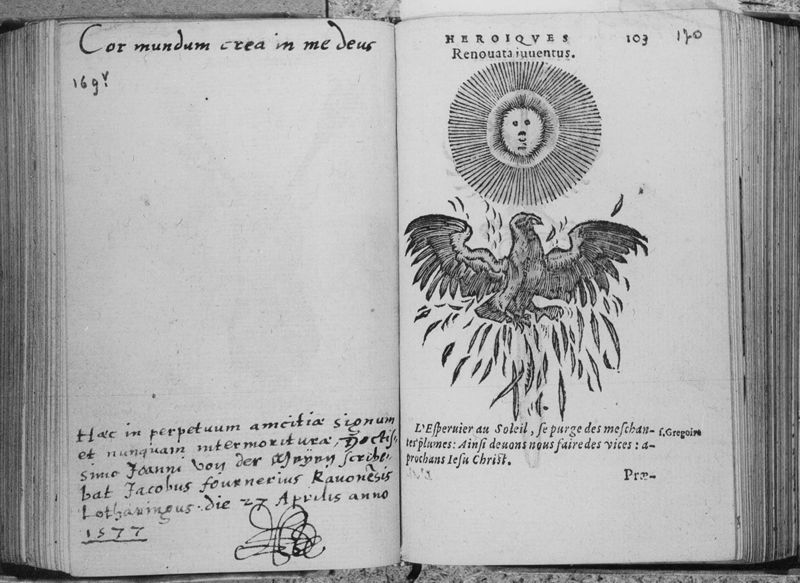 Cor mundum crea in me deus
169v.
Hæc in perpetuum amcitiæ signum
et nunquam intermorituræ, Doctis-
simo Joanni von der
scribe-
bat Jacobus fournerius Rauonẽsis
Lotharingus. die 27 Aprilis anno
1577
HEROIQVES 103 170
Renouata iuuentus.
L'Esperuier au Soleil, se purge des meschan- S. Gregoire
tes plumes: Ainsi deuons nous faire des vices: a-
prochans Iesu Christ.
Præ-